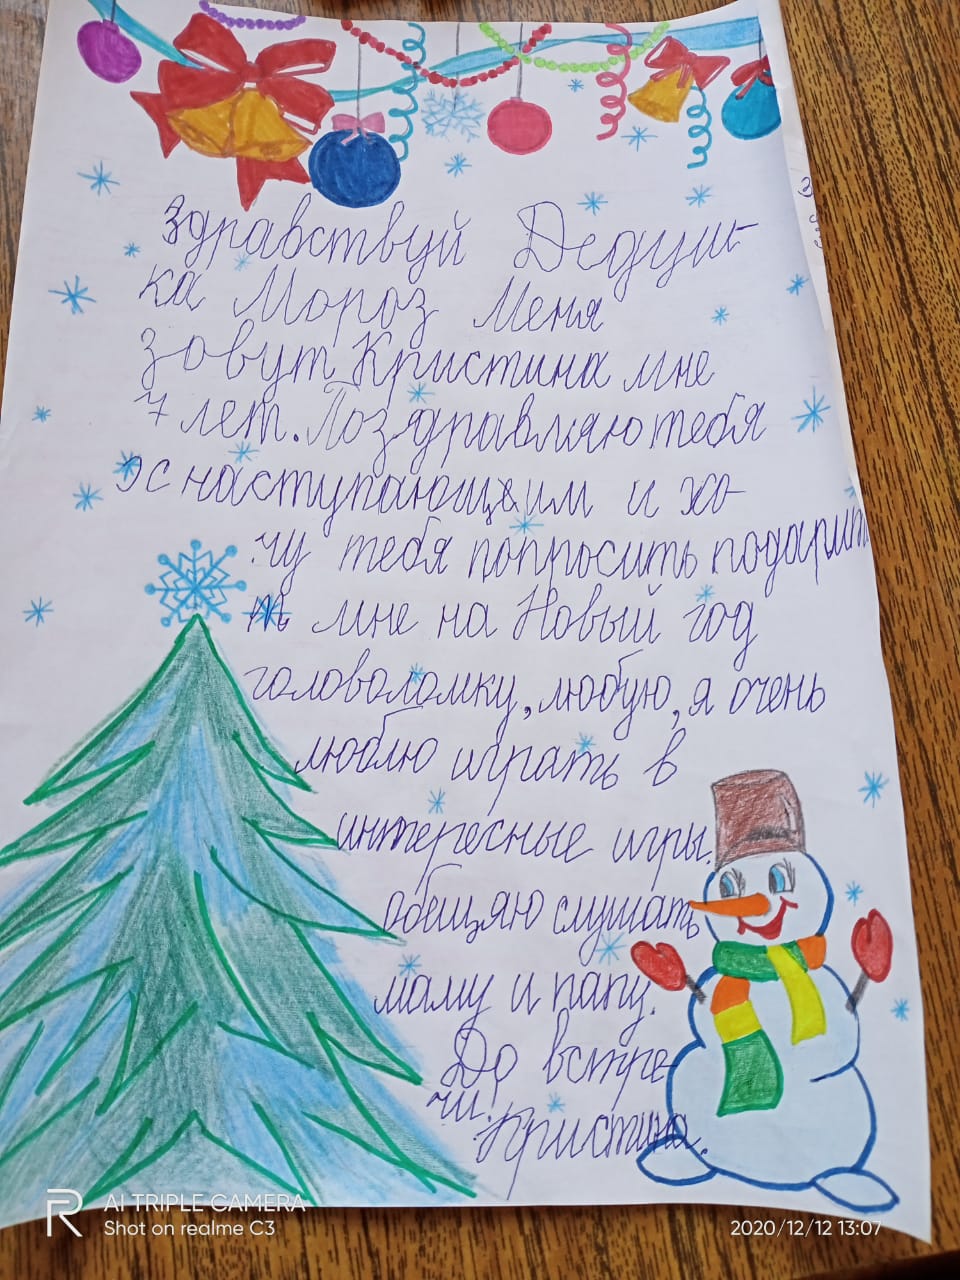 Здравствуй Дедуш-
ка Мороз Меня
зовут Кристина мне
7 лет. Поздравляю тебя
с наступающим и хо-
чу тебя попросить подарит
ть мне на Новый год
головоломку, любую, я очень
люблю играть в
интересные игры.
обещяю слушать
маму и папу.
До встре-
чи.
Кристина.
AI TRIPLE CAMERA
Shot on realme C3
2020/12/12 13:07